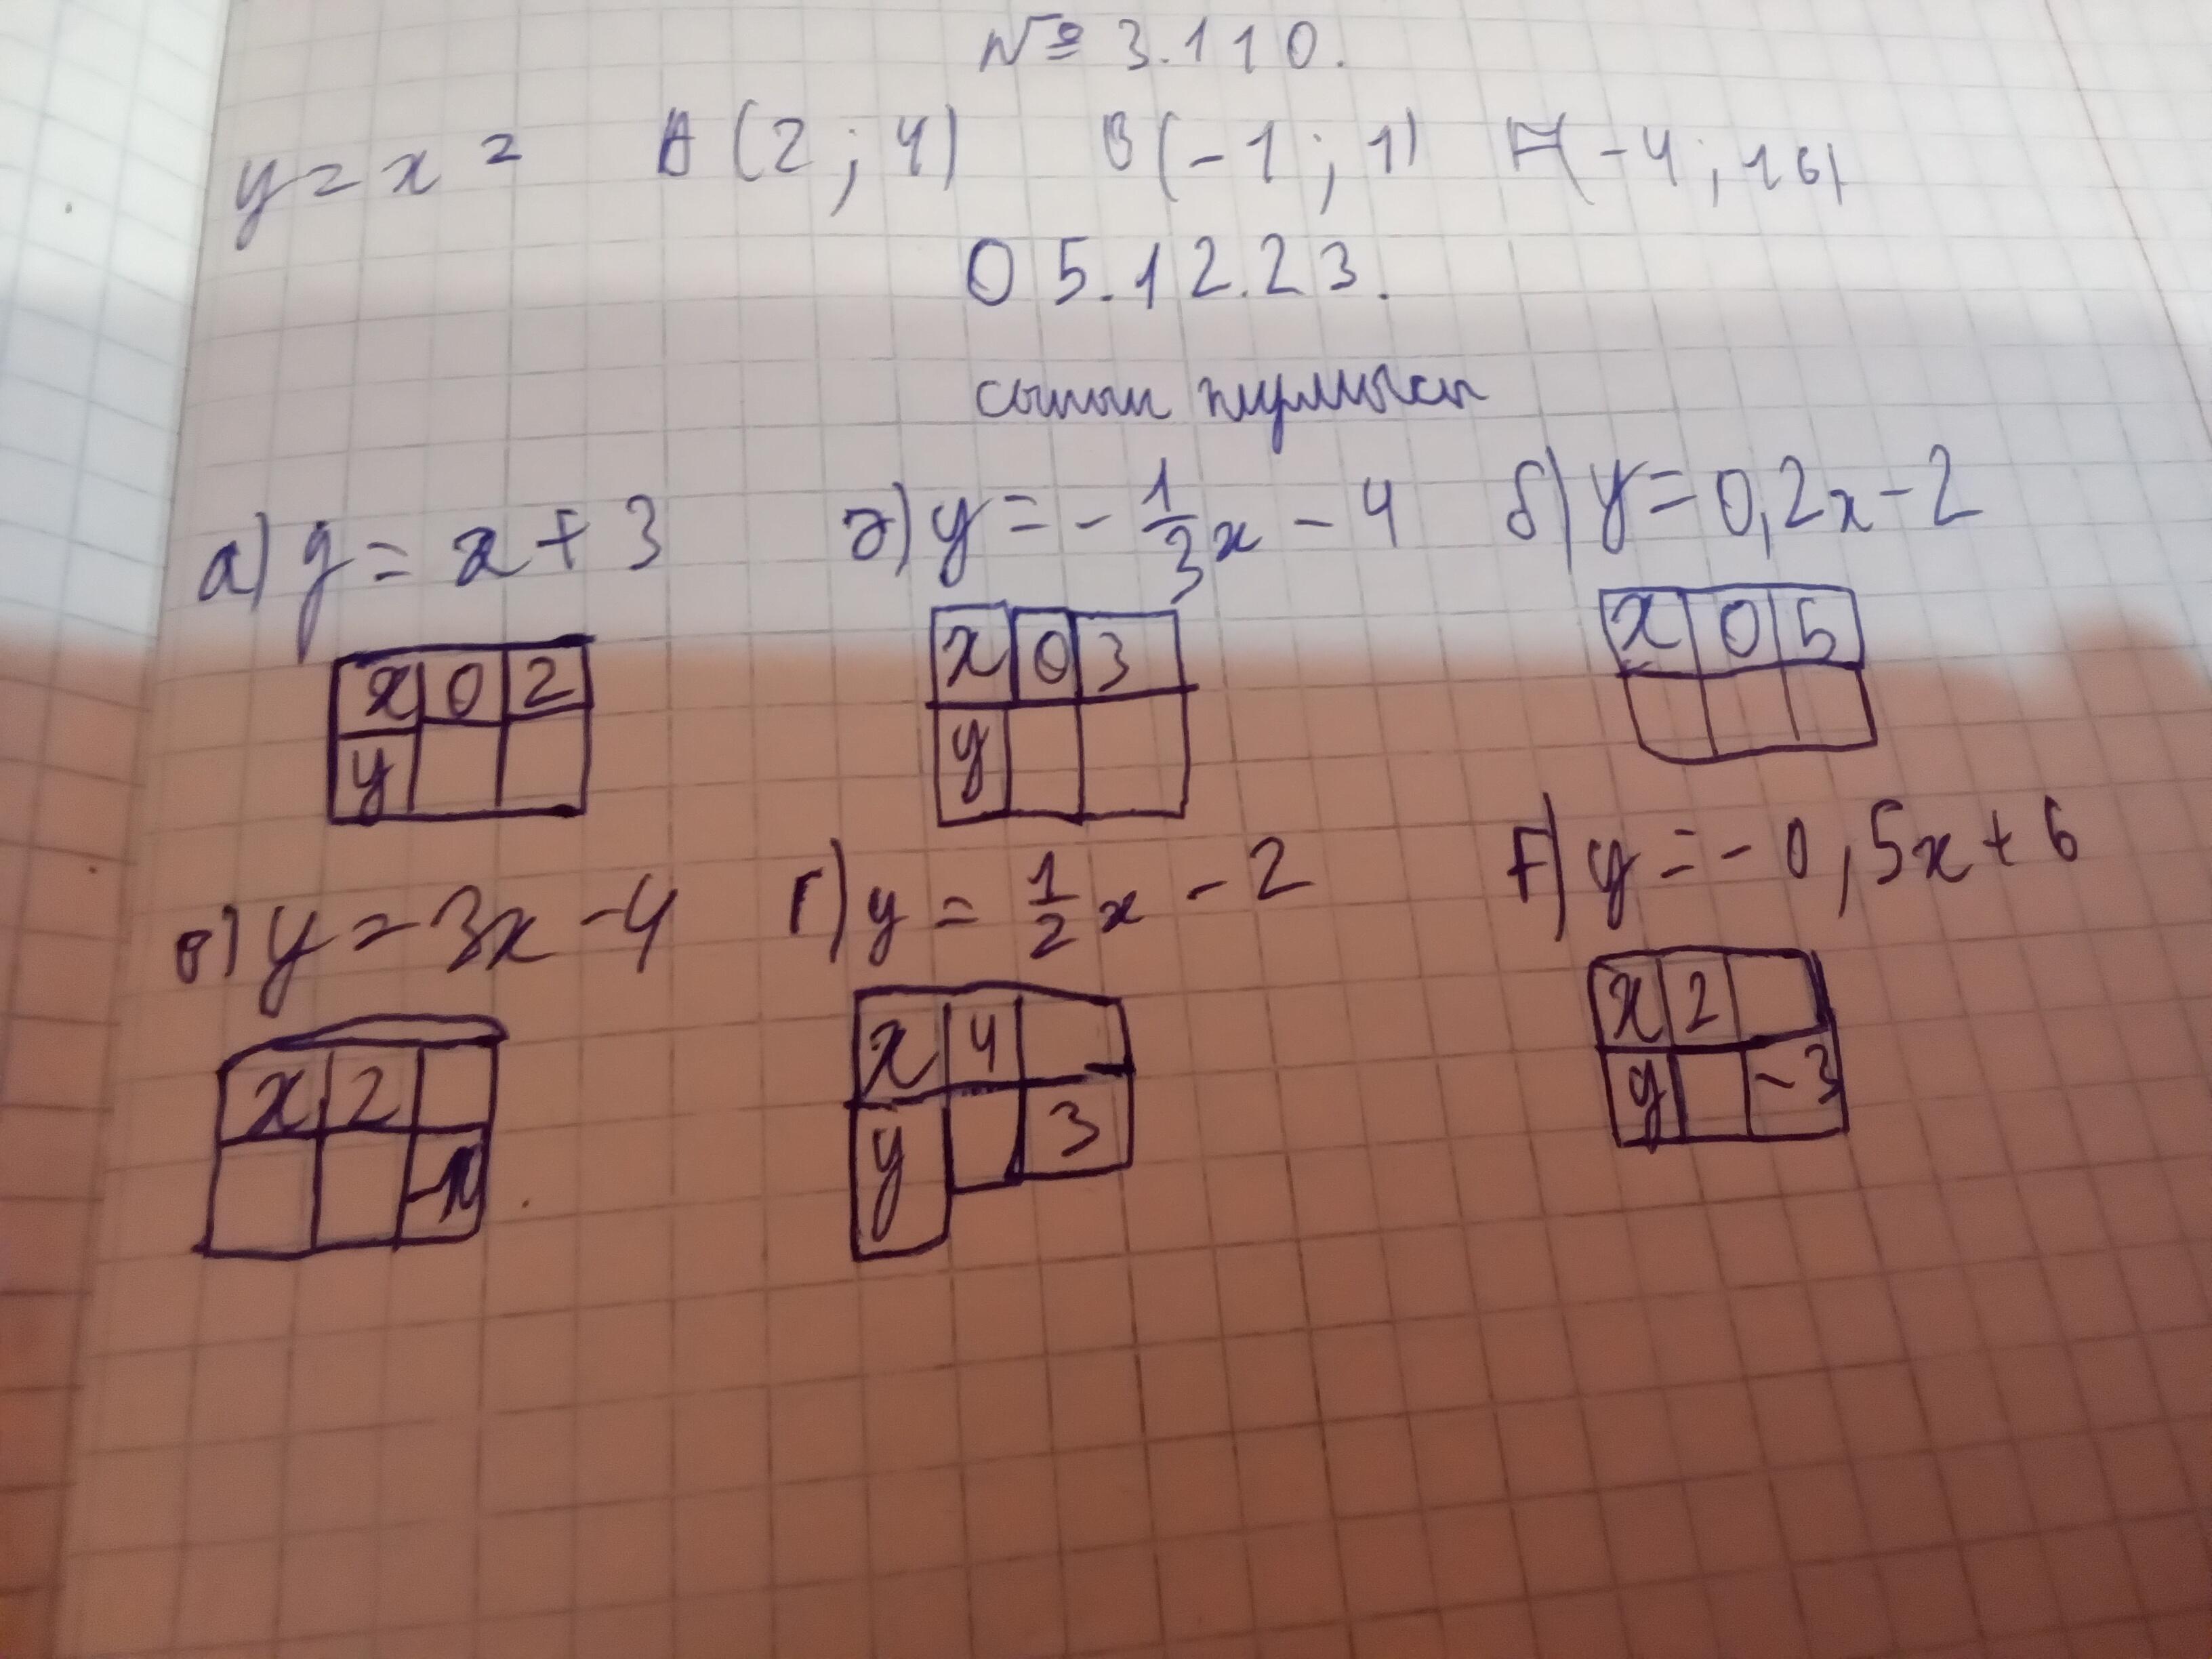 № 3.110.
y = x² A(2; 4) B(-1; 1) F(-4; 16)
05.12.23.
сынып жұмысы
а) y = x + 3 ә) y = - 1/3 x - 4 б) y = 0,2x - 2
x 0 2 x 0 3 x 0 5
y y
в) y = 3x - 4 г) y = 1/2 x - 2 ғ) y = - 0,5x + 6
x 2 x 4 x 2
y 3 y -3